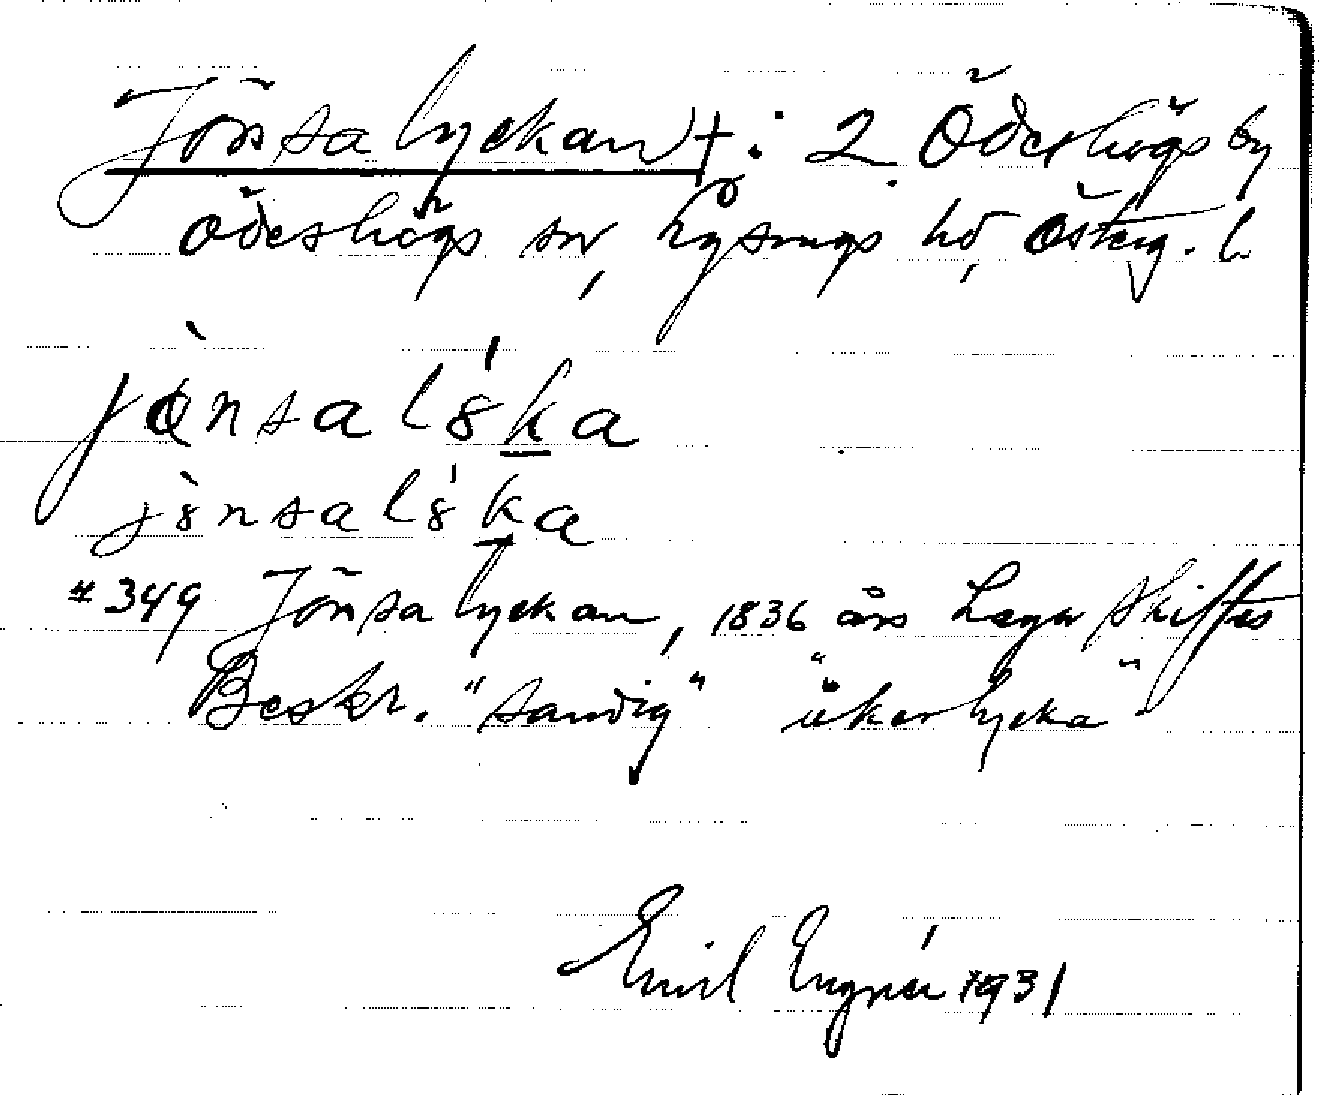 Jönsalyckan †: 2 Ödeshögs by
Ödeshögs sn, Lysings hd, Österg. l.
jònsal8́ka
j8̀nsal8́ka
#349 Jönsalyckan, 1836 års Laga Skiftes
Beskr. "sandig" "åkerlycka"
Emil Engnér 1931